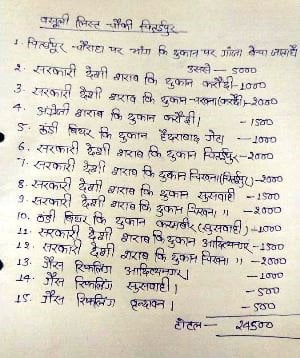 वसूली लिस्ट चौकी चितईपुर
1. चितईपुर चौराहा पर भांग कि दुकान पर गांजा बेचा जाता है
उससे - 5000
2. सरकारी देशी शराब कि दुकान करौंदी - 1000
3. सरकारी देशी शराब कि दुकान - चखना (करौंदी) - 2000
4. अंग्रेजी शराब कि दुकान करौंदी। - 1500
5. ठंडी बियर कि दुकान हैदराबाद गेट। - 1000
6. सरकारी देशी शराब कि दुकान चितईपुर - 2000
7. सरकारी देशी शराब कि दुकान चिखना (चितईपुर) - 2000
8. सरकारी देशी शराब कि दुकान सुसुवाही - 1500
9. सरकारी देशी शराब कि दुकान चिखना " - 2000
10. ठंडी बियर कि दुकान करमबीर (सुसुवाही) - 1000
11. सरकारी देशी शराब कि दुकान आदित्यनगर - 1500
12. सरकारी देशी शराब कि दुकान चिखना " - 2000
13. गैस रिफलिंग आदित्यनगर। - 1000
14. गैस रिफलिंग सुसुवाही। - 500
15. गैस रिफलिंग वृन्दावन। - 500
टोटल - 24500